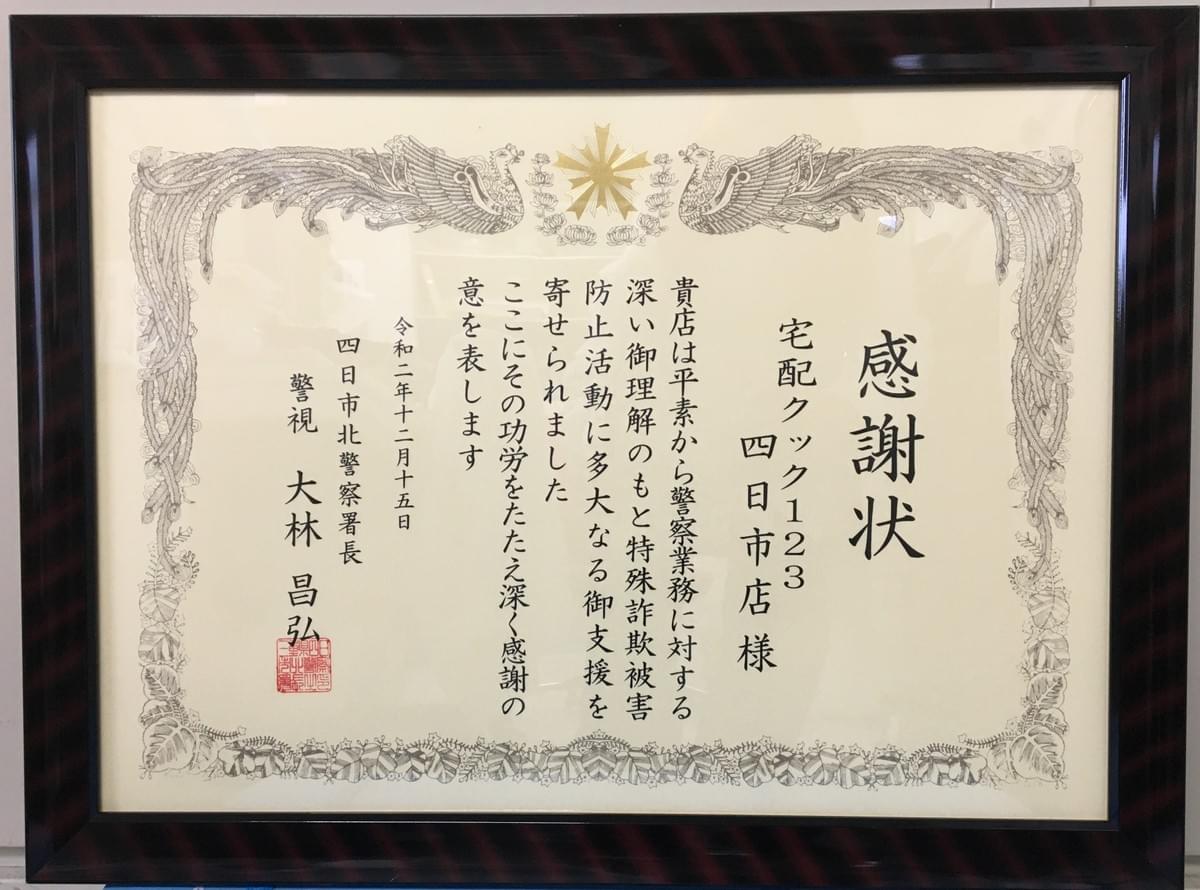 感謝状
宅配クック123
四日市店 様
貴店は平素から警察業務に対する
深い御理解のもと特殊詐欺被害
防止活動に多大なる御支援を
寄せられました
ここにその功労をたたえ深く感謝の
意を表します
令和二年十二月十五日
四日市北警察署長
警視 大林 昌弘